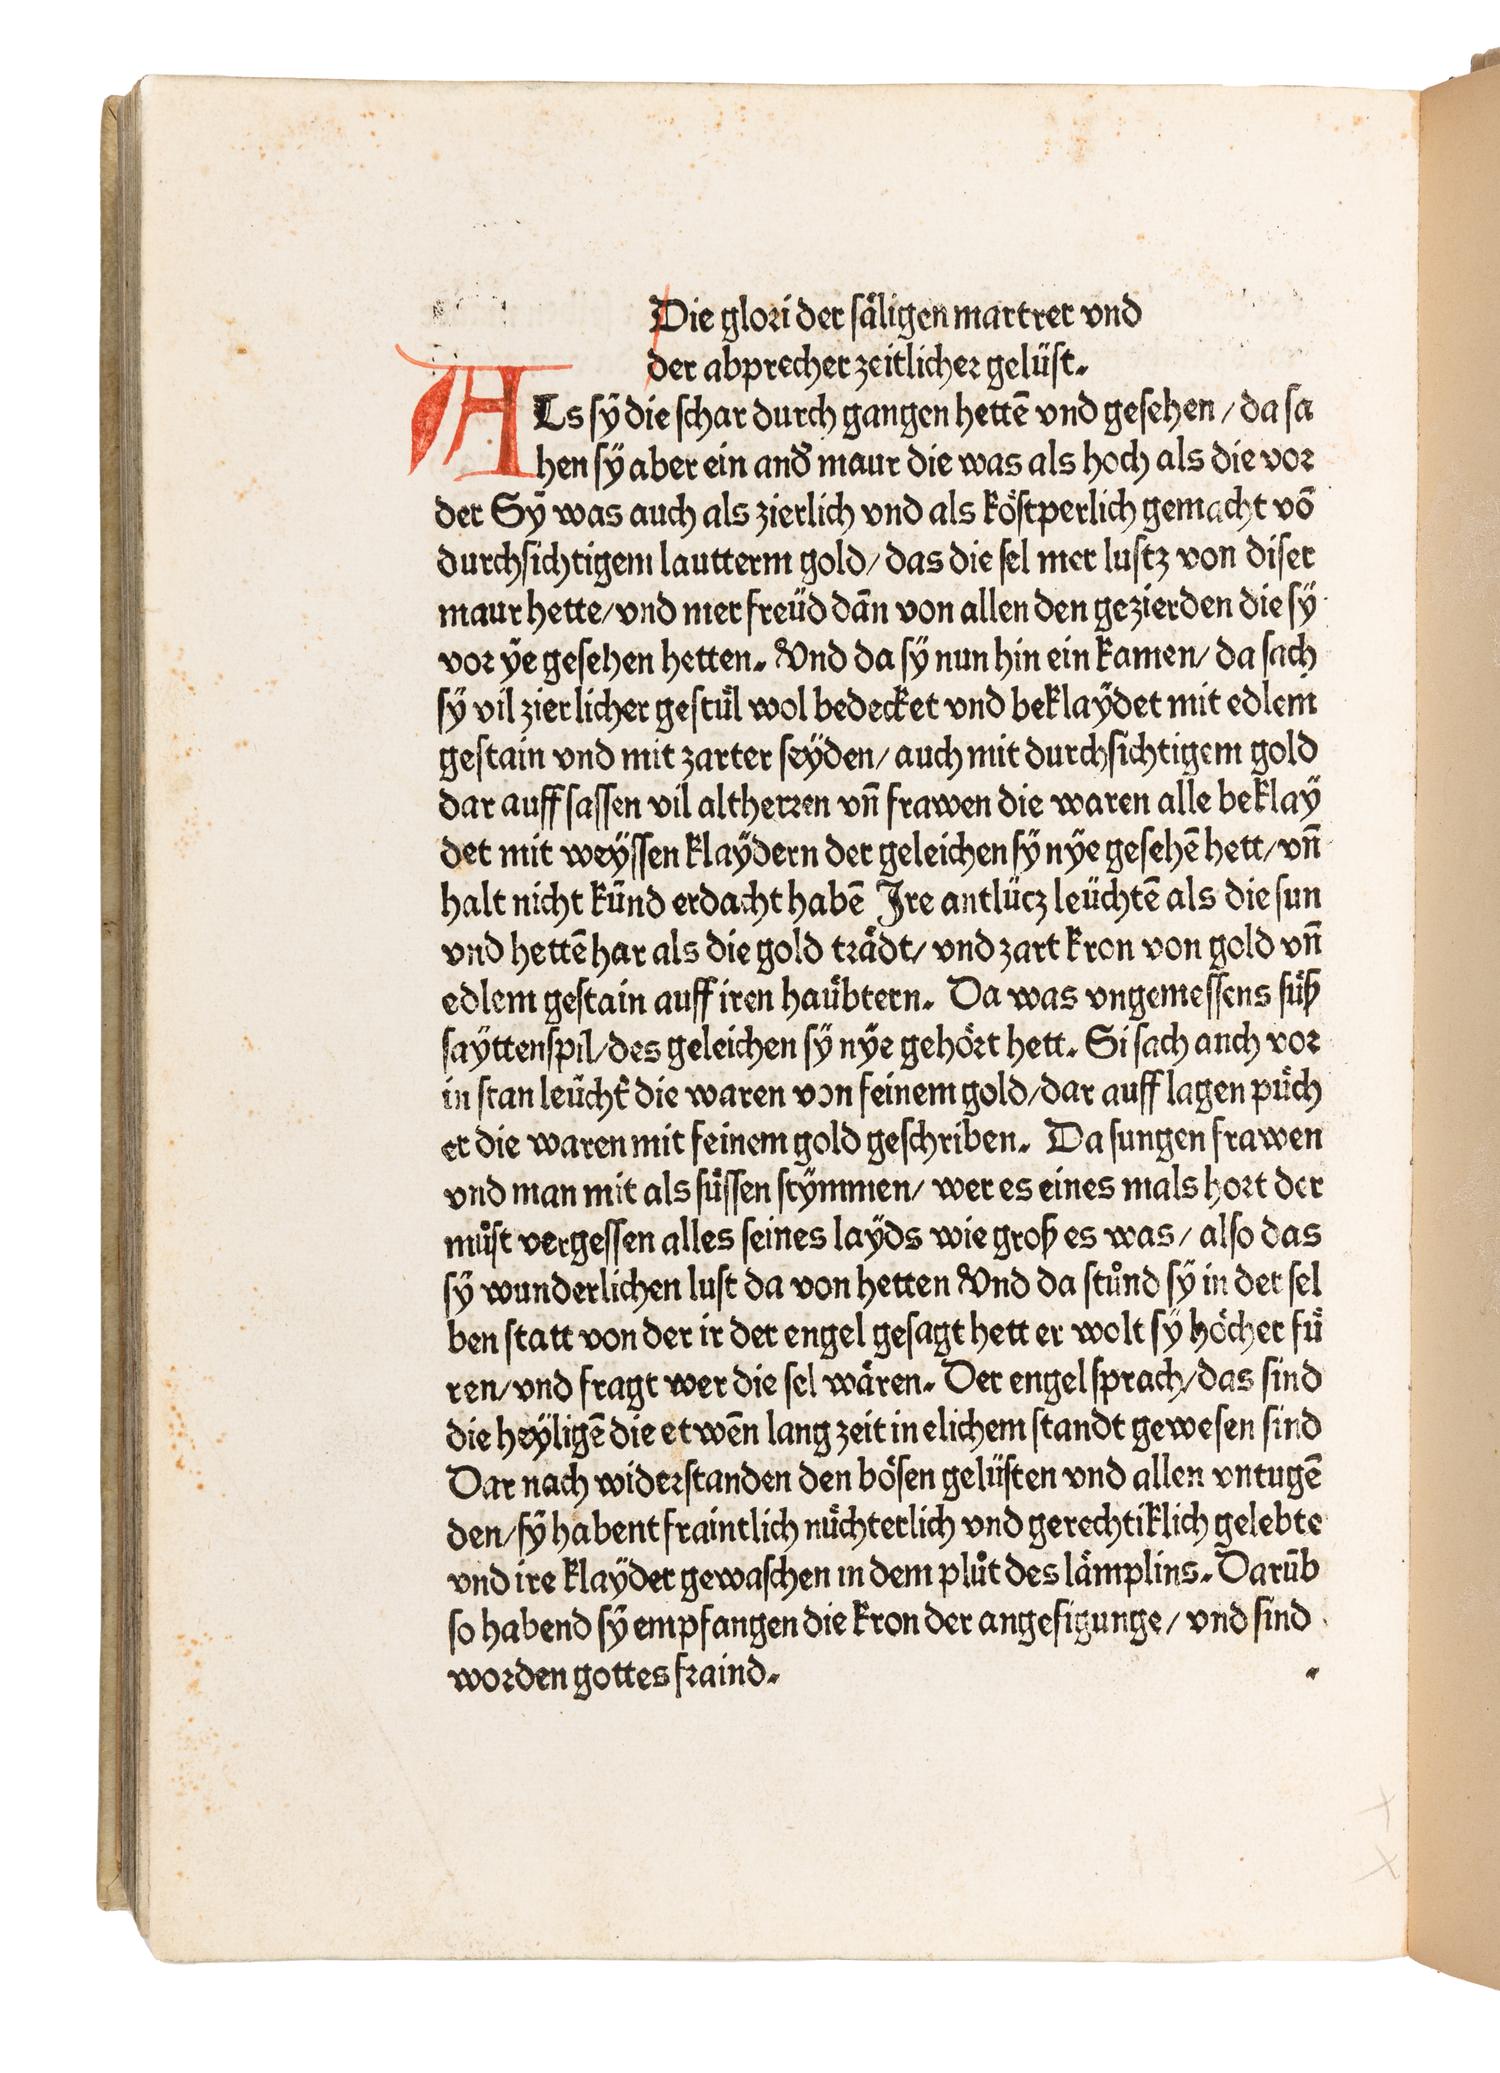 Die glori der säligen martrer vnd
der abprecher zeitlicher gelüst.
ALs sÿ die schar durch gangen hettē vnd gesehen / da sa
hen sÿ aber ein and̄ maur die was als hoch als die vor
der Sÿ was auch als zierlich vnd als köstperlich gemacht vō
durchsichtigem lautterm gold / das die sel mer lustz von diser
maur hette / vnd mer freüd dān von allen den gezierden die sÿ
vor ÿe gesehen hetten. Vnd da sÿ nun hin ein kamen / da sach
sÿ vil zierlicher gestuͤl wol bedecket vnd beklaÿdet mit edlem
gestain vnd mit zarter seÿden / auch mit durchsichtigem gold
dar auff sassen vil altherren vn̄ frawen die waren alle beklaÿ
det mit weÿssen klaÿdern der geleichen sÿ nÿe gesehē hett / vn̄
halt nicht kūnd erdacht habē Ire antlücz leüchtē als die sun
vnd hettē har als die gold trädt / vnd zart kron von gold vn̄
edlem gestain auff iren haübtern. Da was vngemessens süß
saÿttenspil / des geleichen sÿ nÿe gehört hett. Si sach auch vor
in stan leücht̄ die waren von feinem gold / dar auff lagen puͤch
er die waren mit feinem gold geschriben. Da sungen frawen
vnd man mit als suͤssen stÿmmen / wer es eines mals hort der
muͤst vergessen alles seines laÿds wie groß es was / also das
sÿ wunderlichen lust da von hetten Vnd da stuͦnd sÿ in der sel
ben statt von der ir der engel gesagt hett er wolt sÿ höcher fuͤ
ren / vnd fragt wer die sel wären. Der engel sprach / das sind
die heÿligē die etwēn lang zeit in elichem standt gewesen sind
Dar nach widerstanden den bösen gelüsten vnd allen vntugē
den / sÿ habent fraintlich nuͤchterlich vnd gerechtiklich gelebte
vnd ire klaÿder gewaschen in dem pluͦt des lämplins. Darūb
so habend sÿ empfangen die kron der angesigunge / vnd sind
worden gottes fraind.